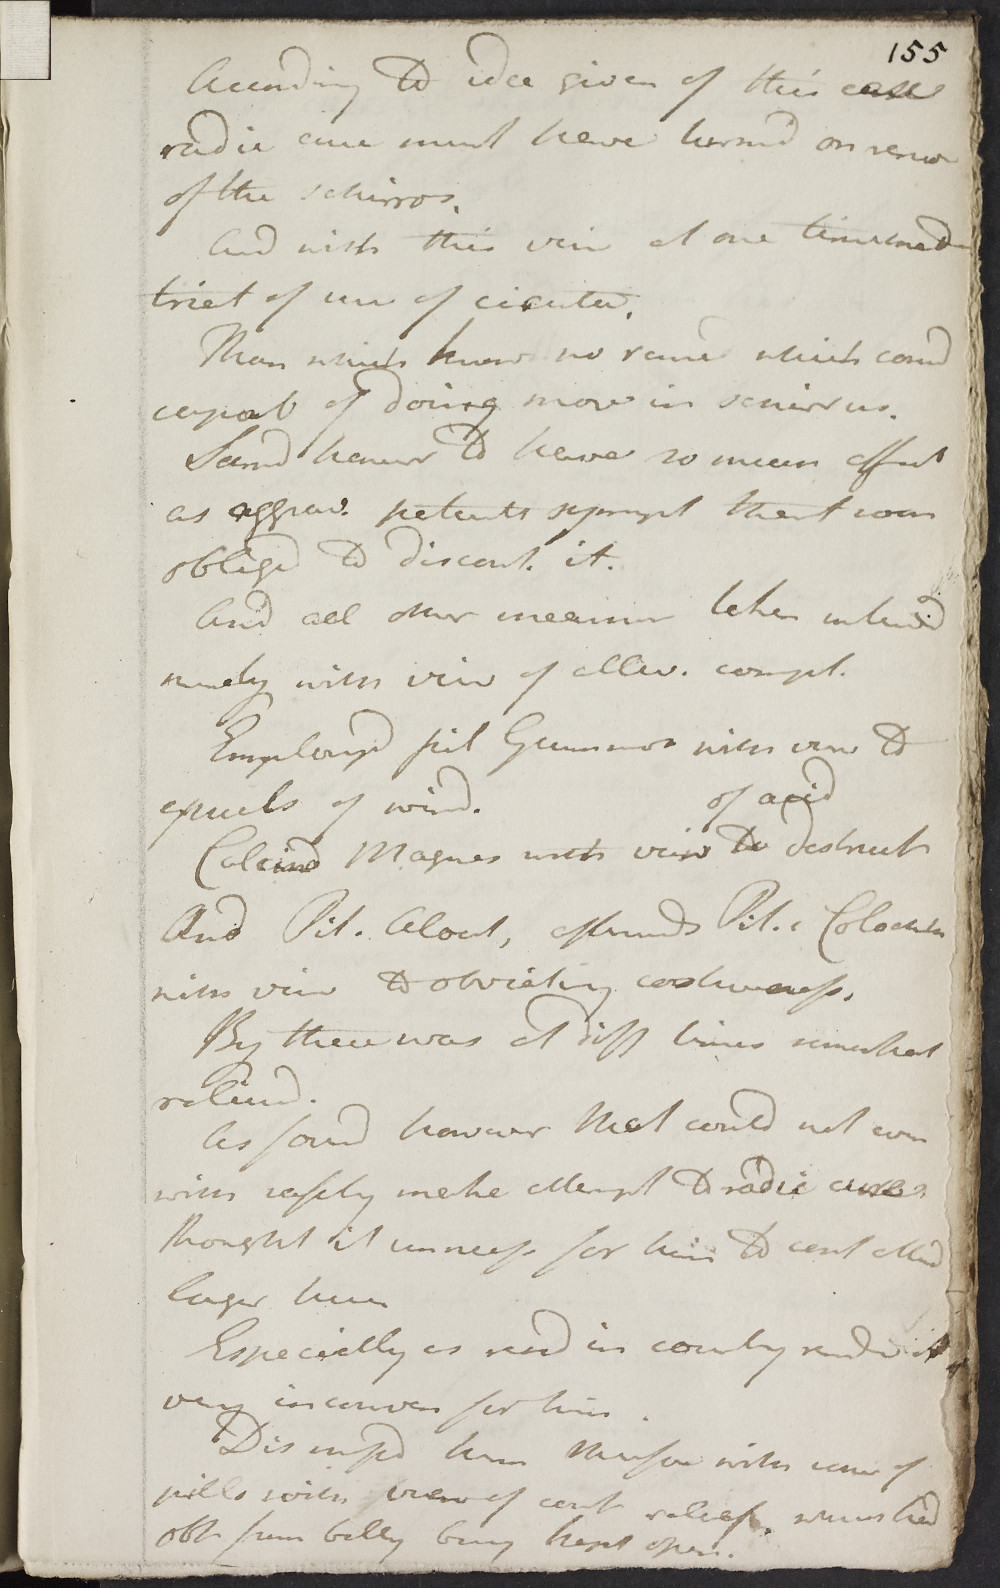 155
According to idea given of this case
radic cure must have turnd on remov
of the schirros.
And with this view at one time made
trial of use of cicuta.
Than which know no remd which coud
capab of doing more in scirrus.
Found howevr to have so mean effect
as aggrav. patients sympt that was
obliged to discont. it.
And all other measures taken
merely with view of allev. compt.
Employd pil Gummos with view to
expuls of wind.
of acid
Calcind Magnes with view to destruct
And Pil. Aloet, afterwds Pil. e Colocynth
with view to obviating costiveness.
By these was at diff times somewhat
relievd.
As found however that could not even
with safety make attempt to radic cure
thought it unnecess for him to cont attend
longer here
Especially as resid in country rendrd it
very inconven for him.
Dismissd him therefore with use of
pills with view of cont relief. which had
obt from belly being kept open.